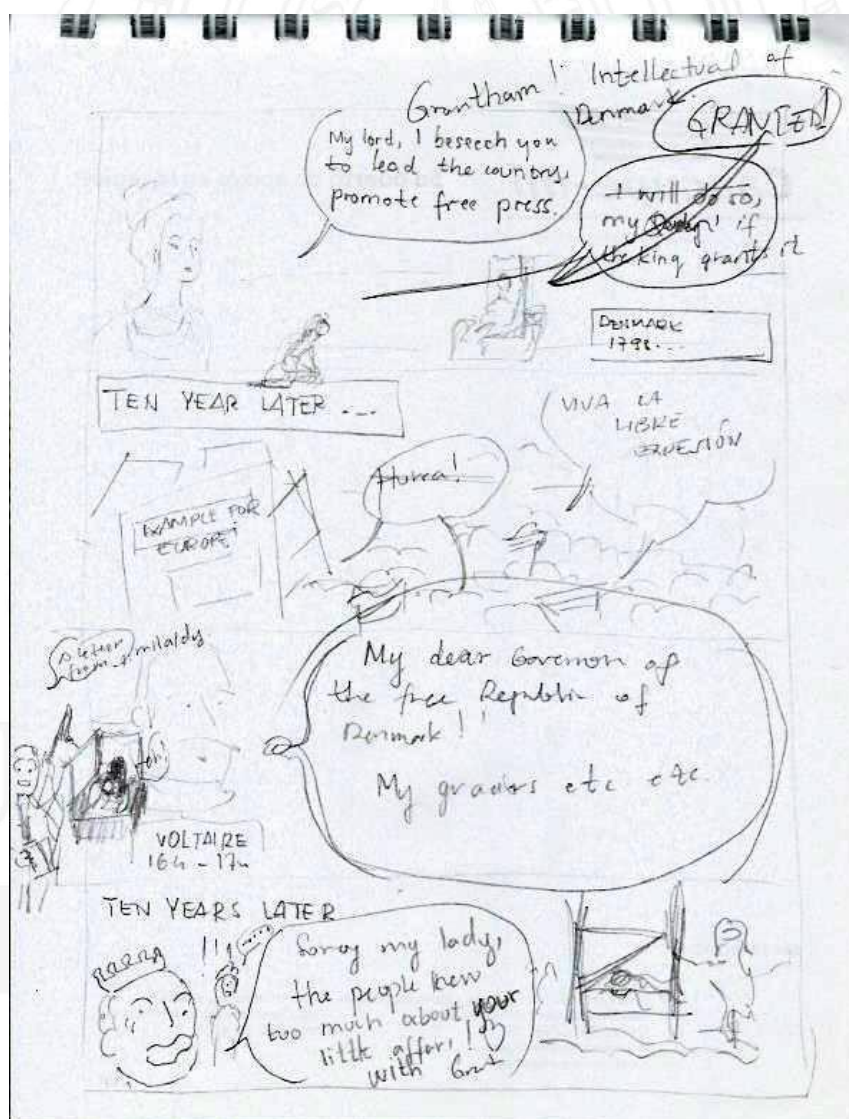 Grantham! Intellectual of
Denmark.
GRANTED!
My lord, I beseech you
to lead the country,
promote free press.
I will do so,
my if
the king grants it
DENMARK
1798...
TEN YEAR LATER ...
VIVA LA
LIBRE
Hurea!
EXAMPLE FOR
EUROPE!
a letter
from milady.
My dear Governor of
the free Republic of
Denmark!
My etc etc.
oh!
VOLTAIRE
16 - 17
TEN YEARS LATER
!!!
....
Sorry my lady,
the people knew
too much about your
little affair,!
with Grant